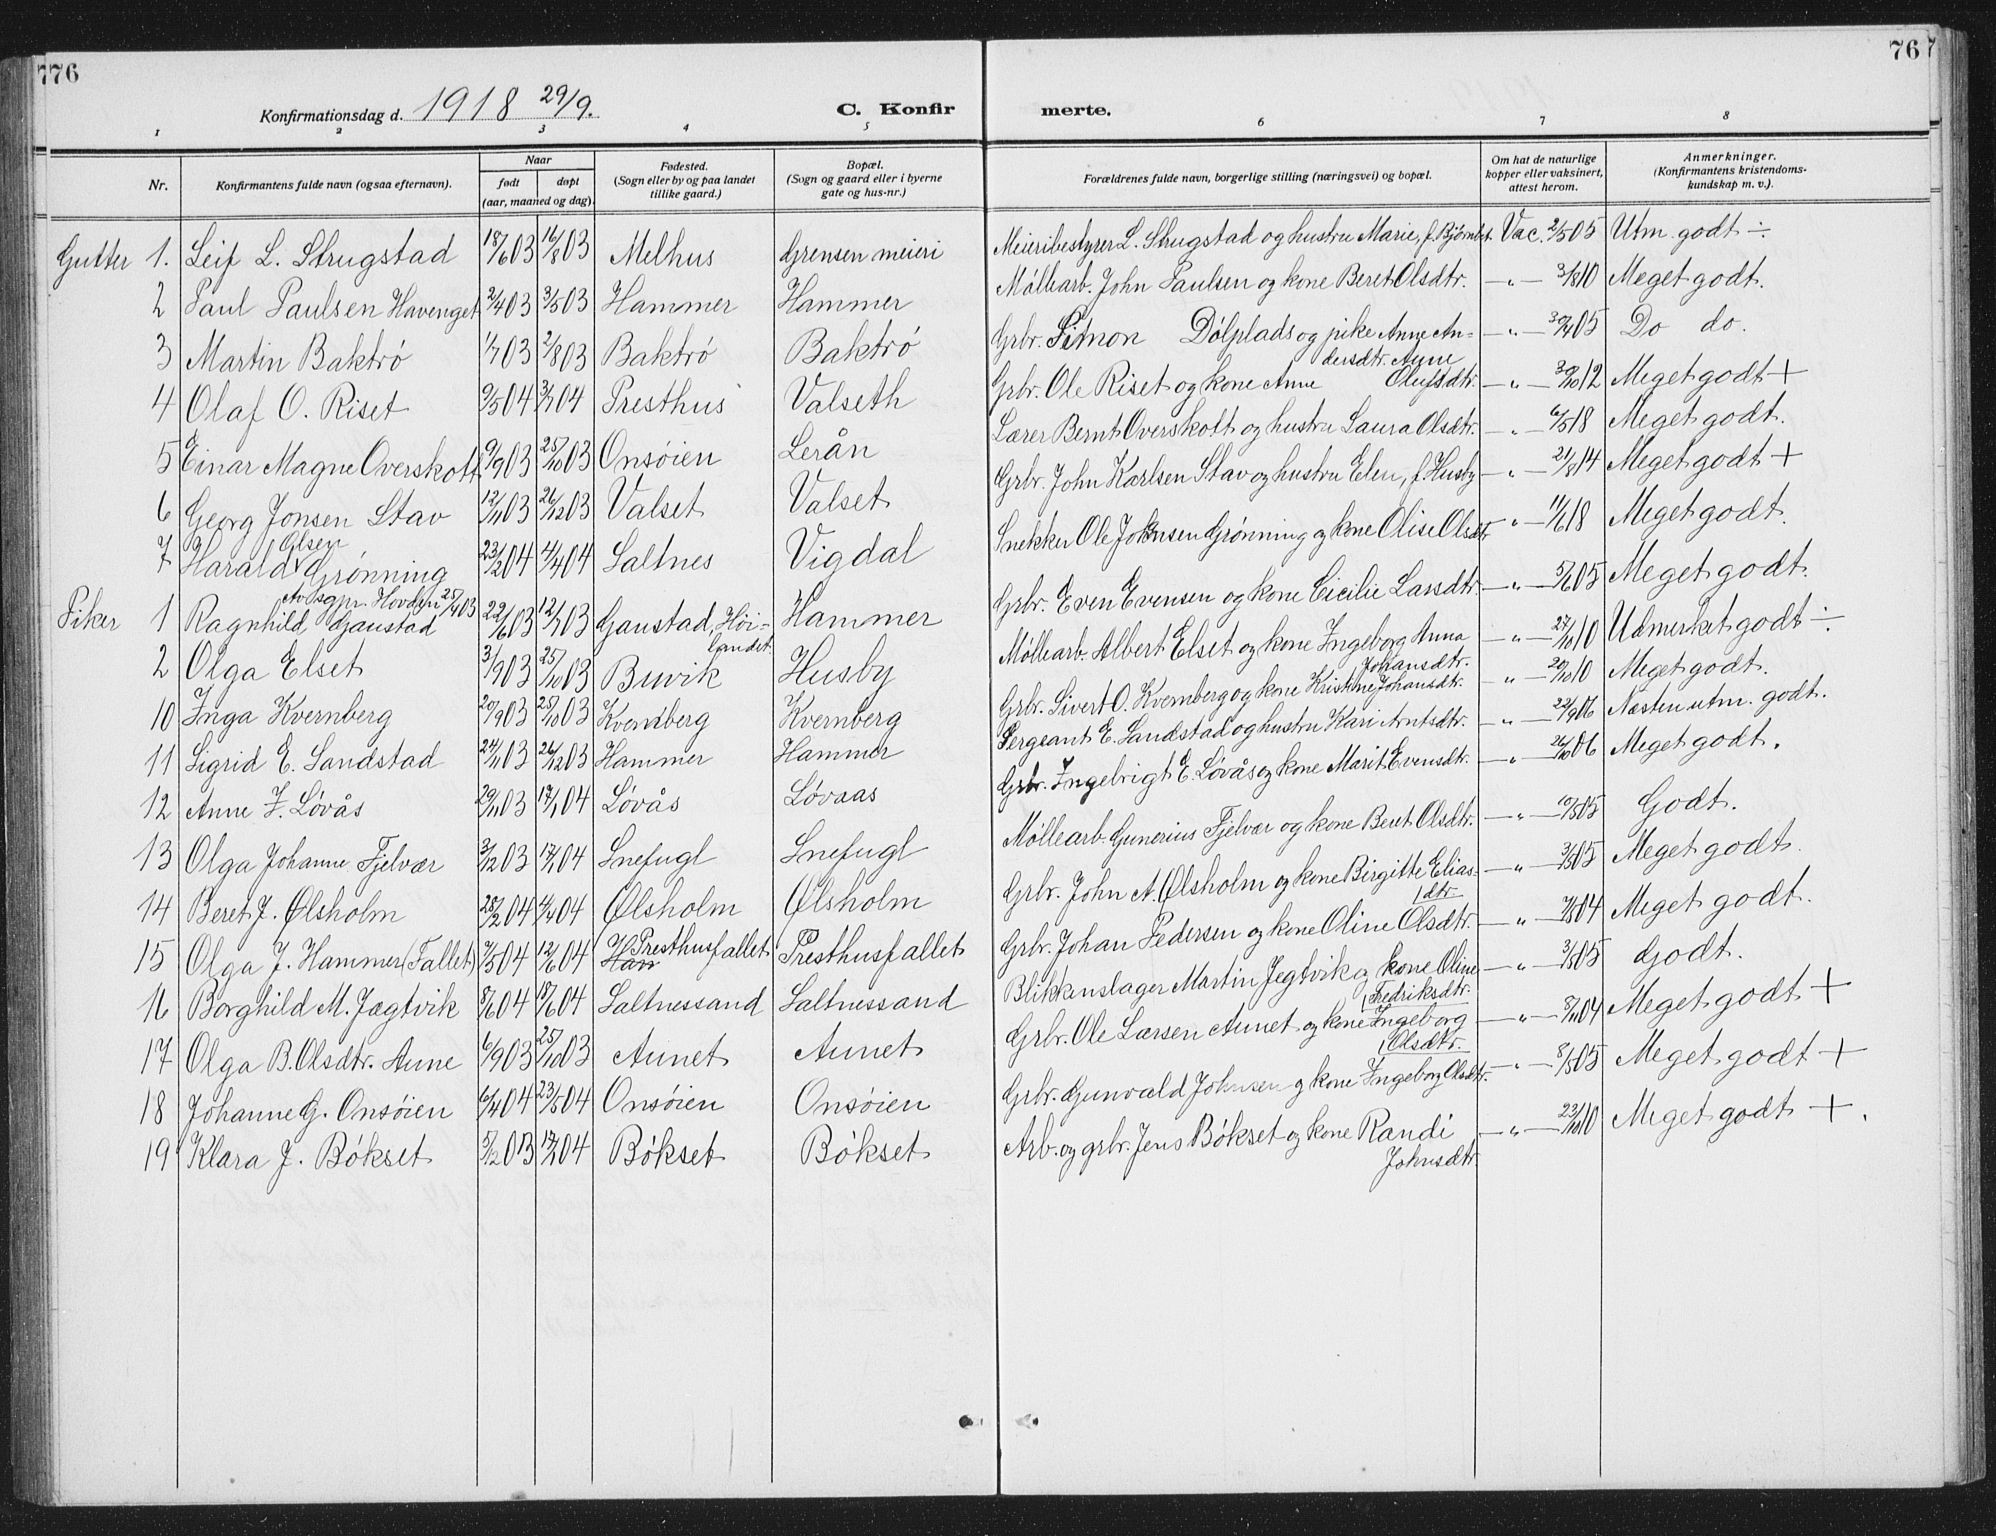 776
76
Konfirmationsdag d. 1918 29/9.
C. Konfirmerte.
1 2 3 4 5 6 7 8
Nr. Konfirmantens fulde navn (ogsaa efternavn). Naar født døpt (aar, maaned og dag). Fødested. (Sogn eller by og paa landet tillike gaard.) Bopæl. (Sogn og gaard eller i byerne gate og hus-nr.) Forældrenes fulde navn, borgerlige stilling (næringsvei) og bopæl. Om hat de naturlige kopper eller vaksinert, attest herom. Anmerkninger. (Konfirmantens kristendomskundskap m. v.).
Gutter 1. Leif L. Strugstad 18/6 03 16/8 03 Melhus Grensen meieri Meieribestyrer L. Strugstad og hustru Marie, f. Bjørnbet. Vac. 2/5 05 Utm. godt ÷
2 Paul Paulsen Havenget 2/4 03 3/5 03 Hammer Hammer Møllearb. John Paulsen og kone Beret Olsdtr. —"— 3/8 10 Meget godt.
3 Martin Baktrö 1/7 03 2/8 03 Baktrö Baktrö Grbr. Simon Dølplads og pike Anne Andersdtr. —"— 30/4 05 Do do.
4 Olaf O. Riset 9/5 04 3/7 04 Presthus Valseth Grbr. Ole Riset og kone Anne Anne Olufsdtr. —"— 30/10 12 Meget godt +
5 Einar Magne Overskott 9/9 03 25/10 03 Onsöien Lerån Lærer Bernt Overskott og hustru Laura Olsdtr. —"— 6/5 18 Meget godt.
6 Georg Jonsen Stav 12/11 03 26/12 03 Valset Valset Grbr. John Karlsen Stav og hustru Elen, f. Husby —"— 21/8 14 Meget godt +
7 Harald Olsen Grønning 23/2 04 4/4 04 Saltnes Vigdal Snekker Ole Johnsen Grønning og kone Olise Olsdtr. " — 11/6 18 Meget godt.
Piker 1 Ragnhild Gaustad Av sgpr. Hovden 25/4 03 22/6 03 12/7 03 Gaustad, Höilandet. Hammer Grbr. Even Evensen og kone Cicilie Larsdtr. —"— 5/6 05 Meget godt.
2 Olga Elset 3/9 03 25/10 03 Buvik Husby Møllearb. Albert Elset og kone Ingeborg Anna Johansdtr. —"— 27/10 10 Udmerket godt ÷
10 Inga Kvernberg 20/9 03 25/10 03 Kvernberg Kvernberg Grbr. Sivert O. Kvernberg og kone Kristine Johansdtr. —"— 20/10 10 Meget godt.
11 Sigrid E. Sandstad 24/11 03 26/12 03 Hammer Hammer Sergeant E. Sandstad og hustru Kari Arntsdtr. —"— 22/9 06 Næsten utm. godt.
12 Anne I. Lövås 29/11 03 17/1 04 Lövås Lövaas Grbr. Ingebrigt E. Lövås og kone Marit Evensdtr. —"— 26/10 06 Meget godt.
13 Olga Johanne Fjelvær 3/12 03 17/1 04 Snefugl Snefugl Møllearb. Gunerius Fjelvær og kone Beret Olsdtr. —"— 10/5 05 Godt.
14 Beret J. Ølsholm 28/2 04 4/4 04 Ølsholm Ølsholm Grbr. John A. Ølsholm og kone Birgitte Eliasdtr. —"— 3/5 05 Meget godt.
15 Olga J. Hammer (Fallet) 7/5 04 12/6 04 Ham Presthusfallet Presthusfallet Grbr. Johan Pedersen og kone Oline Olsdtr. —"— 7/8 04 Meget godt.
16 Borghild M. Jægtvik 8/6 04 18/6 04 Saltnessand Saltnessand Blikkenslager Martin Jegtvik og kone Oline Fredriksdtr. —"— 3/5 05 Godt.
17 Olga B. Olsdtr. Aune 6/9 03 25/10 03 Aunet Aunet Grbr. Ole Larsen Aunet og kone Ingeborg Olsdtr. —"— 8/11 04 Meget godt +
18 Johanne G. Onsöien 6/4 04 23/5 04 Onsöien Onsöien Grbr. Gunvald Johnsen og kone Ingeborg Olsdtr. —"— 8/5 05 Meget godt +
19 Klara J. Bökset 5/12 03 17/1 04 Bökset Bökset Arb. og grbr. Jens Bökset og kone Randi Johnsdtr. —"— 23/10 10 Meget godt +.